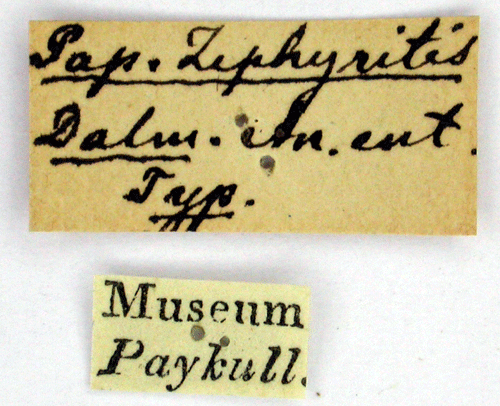 Pap. Zephyritis
Dalm. An. ent.
Typ.
Museum
Paykull.